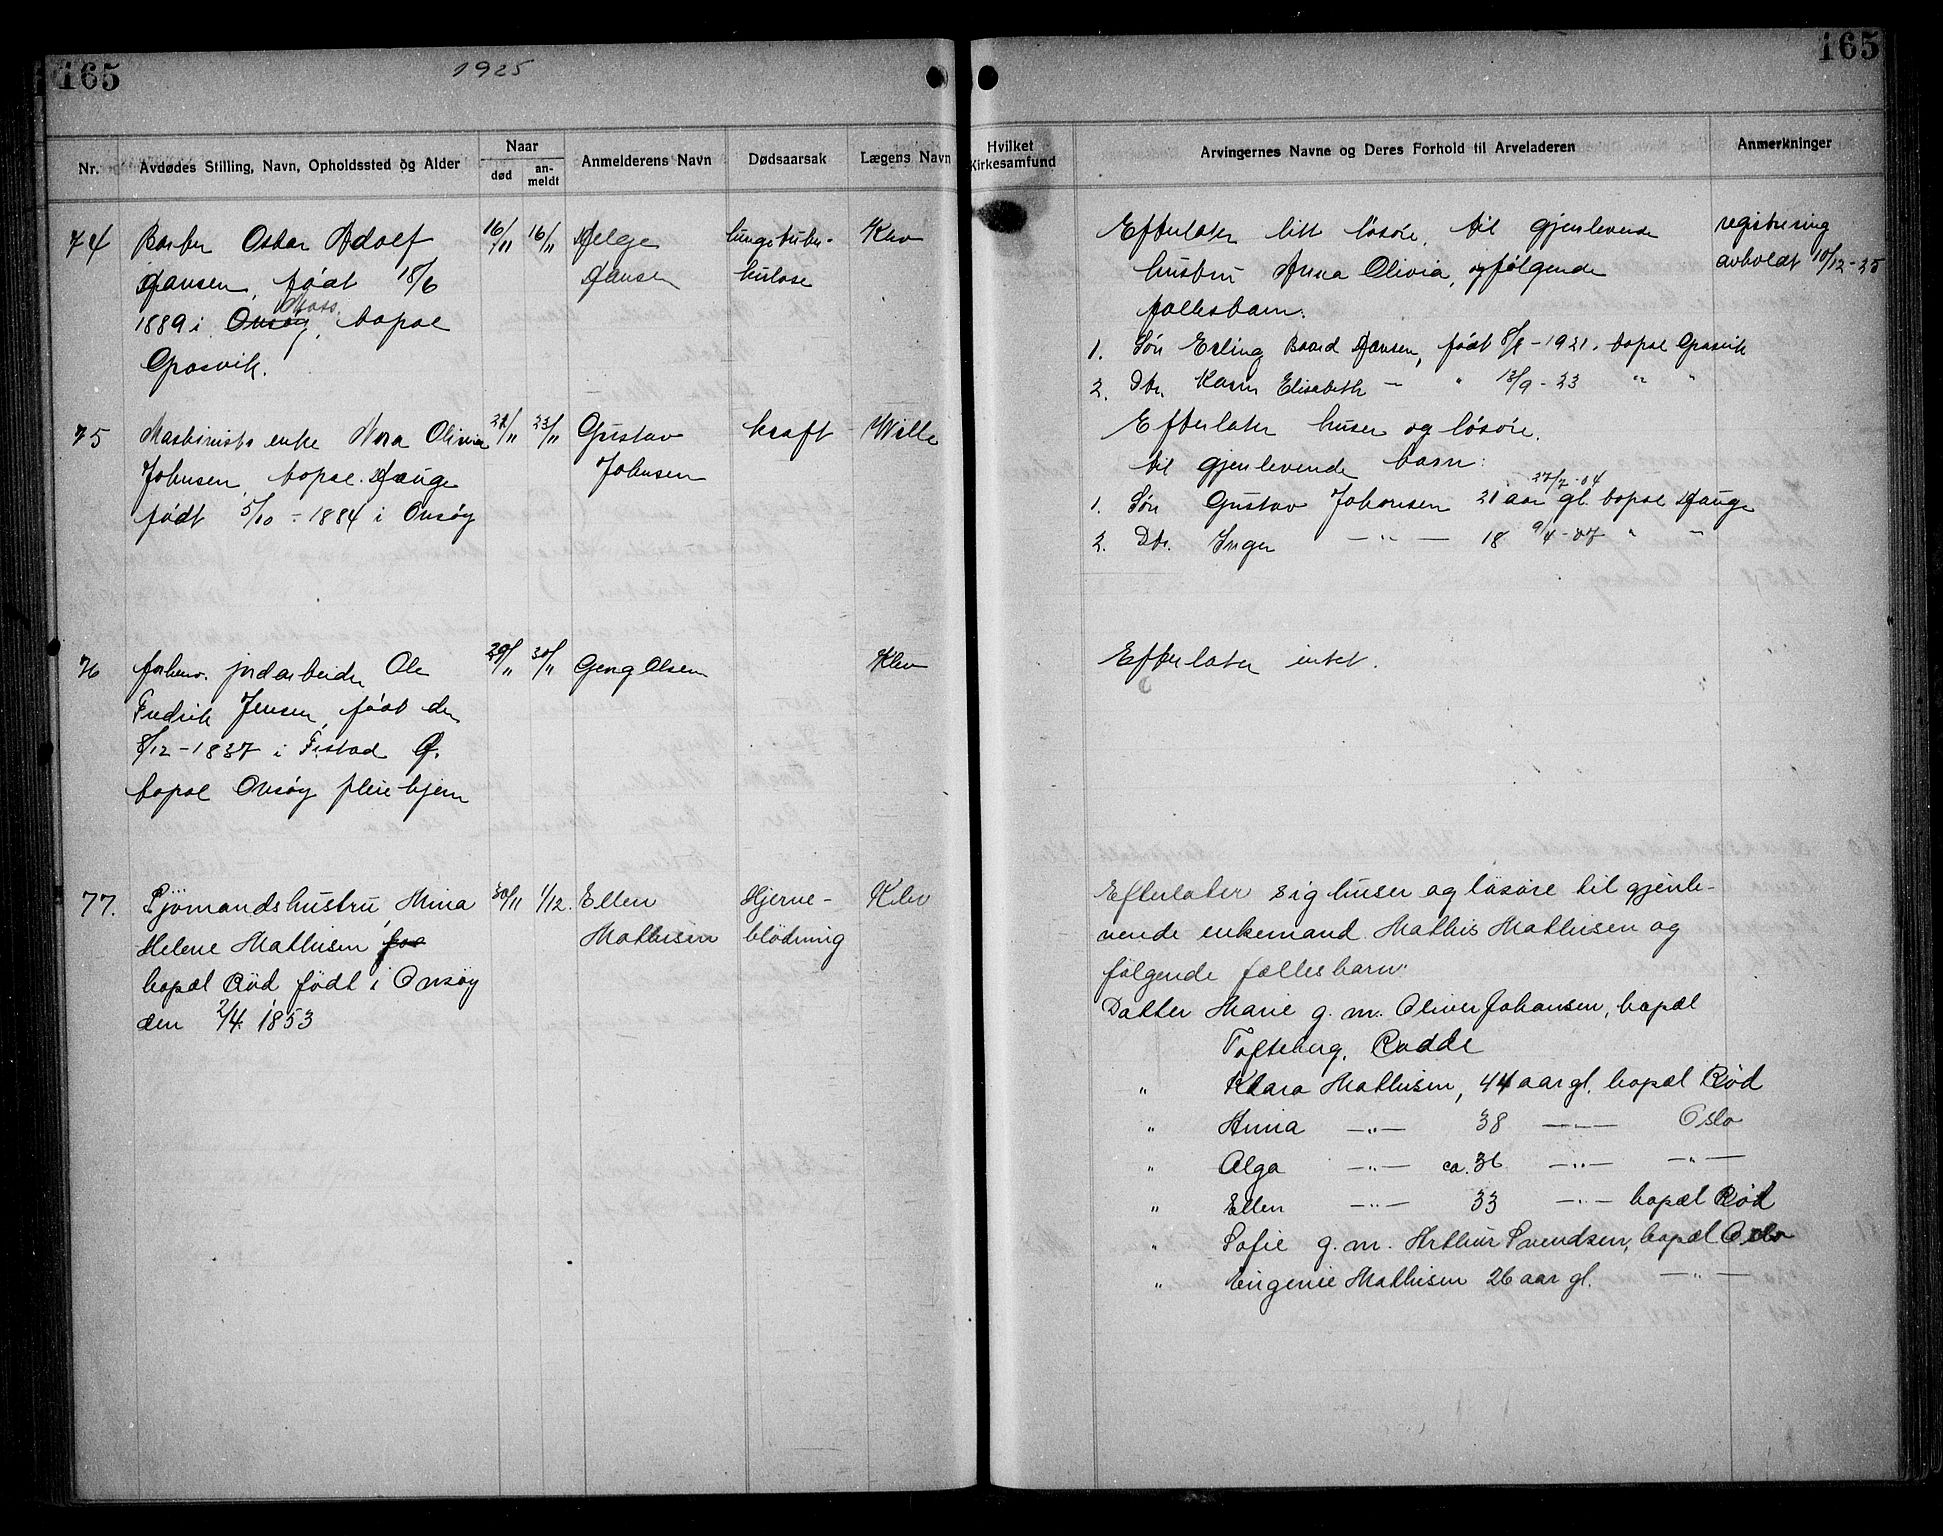 165
1925
165
Nr.
Avdødes Stilling, Navn, Opholdssted og Alder
Naar
død
an-
meldt
Anmelderens Navn
Dødsaarsak
Lægens Navn
Hvilket
Kirkesamfund
Arvingernes Navne og Deres Forhold til Arveladeren
Anmerkninger
74
Barber Oskar Adolf
Hansen, født 18/6
Moss
1889 i Onsøy, bopæl
Græsvik.
16/11
16/11
Helge
Hansen
lungetuber-
kulose
Klev
Efterlater litt løsøre, til gjenlevende
hustru Anna Olivia, og følgende
fællesbarn.
1. Søn Erling Baard Hansen, født 8/8-1921. bopæl Græsvik
2. Dtr. Karin Elisabeth — " 13/9-23 " "
registrering
avholdt 10/12-25
75
Maskinists enke Nora Olivia
Johnsen, bopæl. Hauge
født 5/10-1884 i Onsøy
21/11
23/11
Gustav
Johnsen
kræft
Wille
Efterlater huser og løsøre.
til gjenlevende barn:
27/7-04
1. Søn Gustav Johansen 21 aar gl. bopæl Hauge
2. Dtr. Inger —"— 18 9/4-07 " "
76
forhenv. jordarbeider Ole
Fredrik Jensen, født den
8/12-1837 i Tistad Ø.
bopæl Onsøy pleiehjem
29/11
30/11
Georg Olsen
Klev
Efterlater intet.
77.
Sjømandshustru, Mina
Helene Mathisen
bopæl Rød født i Onsøy
den 2/4 1853
30/11
1/12.
Ellen
Mathisen
Hjerne-
blødning
Klev
Efterlater sig huser og løsøre til gjenle-
vende enkemand Mathis Mathisen og
følgende fællesbarn:
Datter Marie g. m. Oliver Johansen, bopæl
Tofteberg, Rødde
" Klara Mathisen, 44 aar gl. bopæl Rød
" Anna —"— 38 —"— Oslo
" Olga —"— ca. 36 —"— —"—
" Ellen —"— 33 —"— bopæl Rød
" Sofie g. m. Arthur Svendsen, bopæl Oslo
" Eugenie Mathisen 26 aar gl. —"—